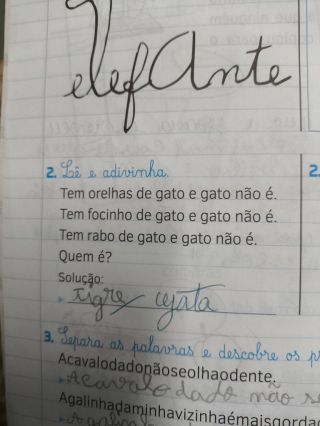 elefAnte
2. Lê e adivinha. 2.
Tem orelhas de gato e gato não é.
Tem focinho de gato e gato não é.
Tem rabo de gato e gato não é.
Quem é?
Solução:
tigre
3. Separa as palavras e descobre os
Acavalodadonãoseolhaodente.
Acavalo dado não
Agalinhadaminhavizinhaémaisgorda